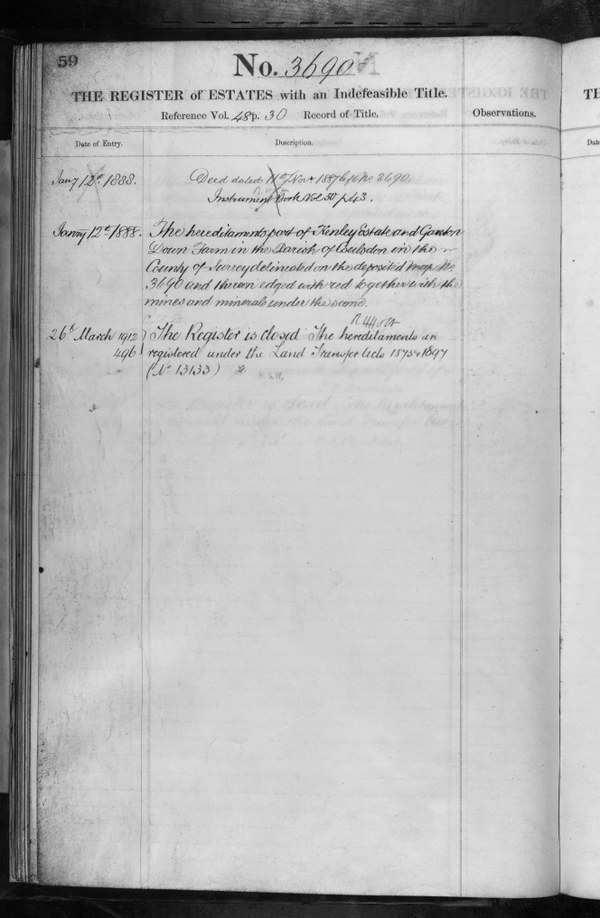 59
No. 3690
THE REGISTER of ESTATES with an Indefeasible Title.
Reference Vol. 48 p. 30 Record of Title.
Observations.
Date of Entry.
Description.
Jany 12th 1888.
Deed dated 11th Novr 1887 No 3690.
Instrument Book Vol 50 p 43.
Janry 12th 1888.
The hereditaments part of Kenley Estate and Garston
Down Farm in the Parish of Coulsdon in the
County of Surrey delineated on the deposited map No
3690 and thereon edged with red together with the
mines and minerals under the same.
26th March 1912
496
The Register is closed The hereditaments are
registered under the Land Transfer Acts 1875 & 1897
(No 13133)